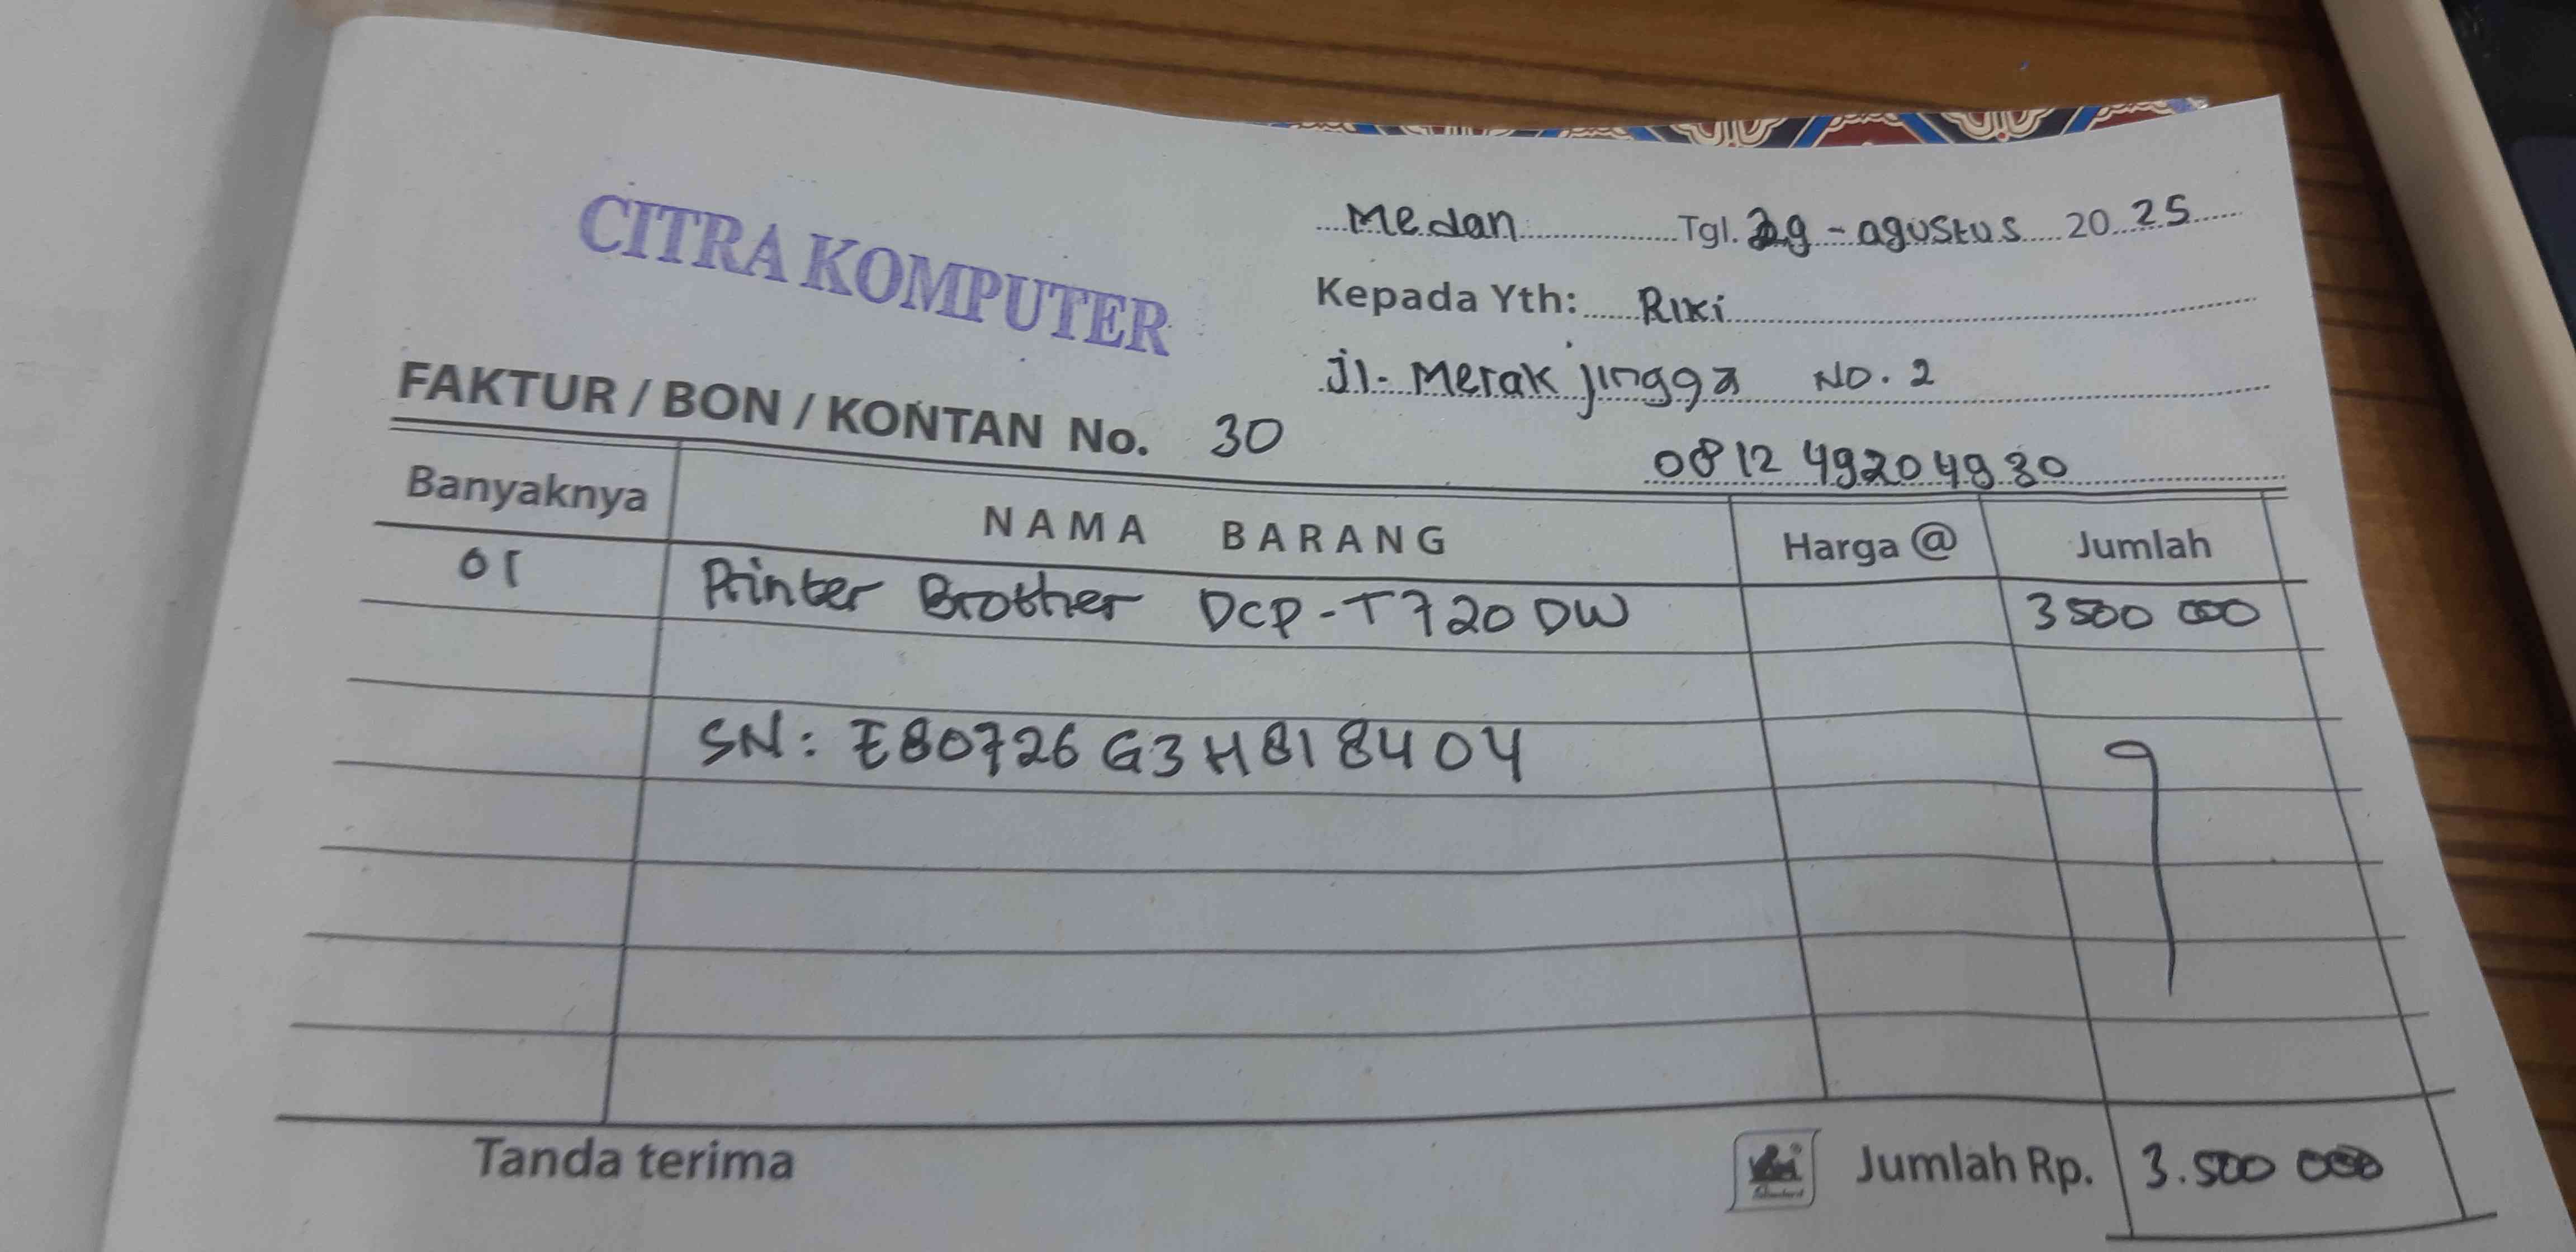 CITRA KOMPUTER
Medan Tgl. 29 - agustus 2025
Kepada Yth: Riki
Jl. Merak jingga No. 2
FAKTUR / BON / KONTAN No. 30
0812 49204930
Banyaknya NAMA BARANG Harga @ Jumlah
01 Printer Brother DCP-T720DW 3500 000
SN: E80726G3H818404
Tanda terima
Jumlah Rp. 3.500 000